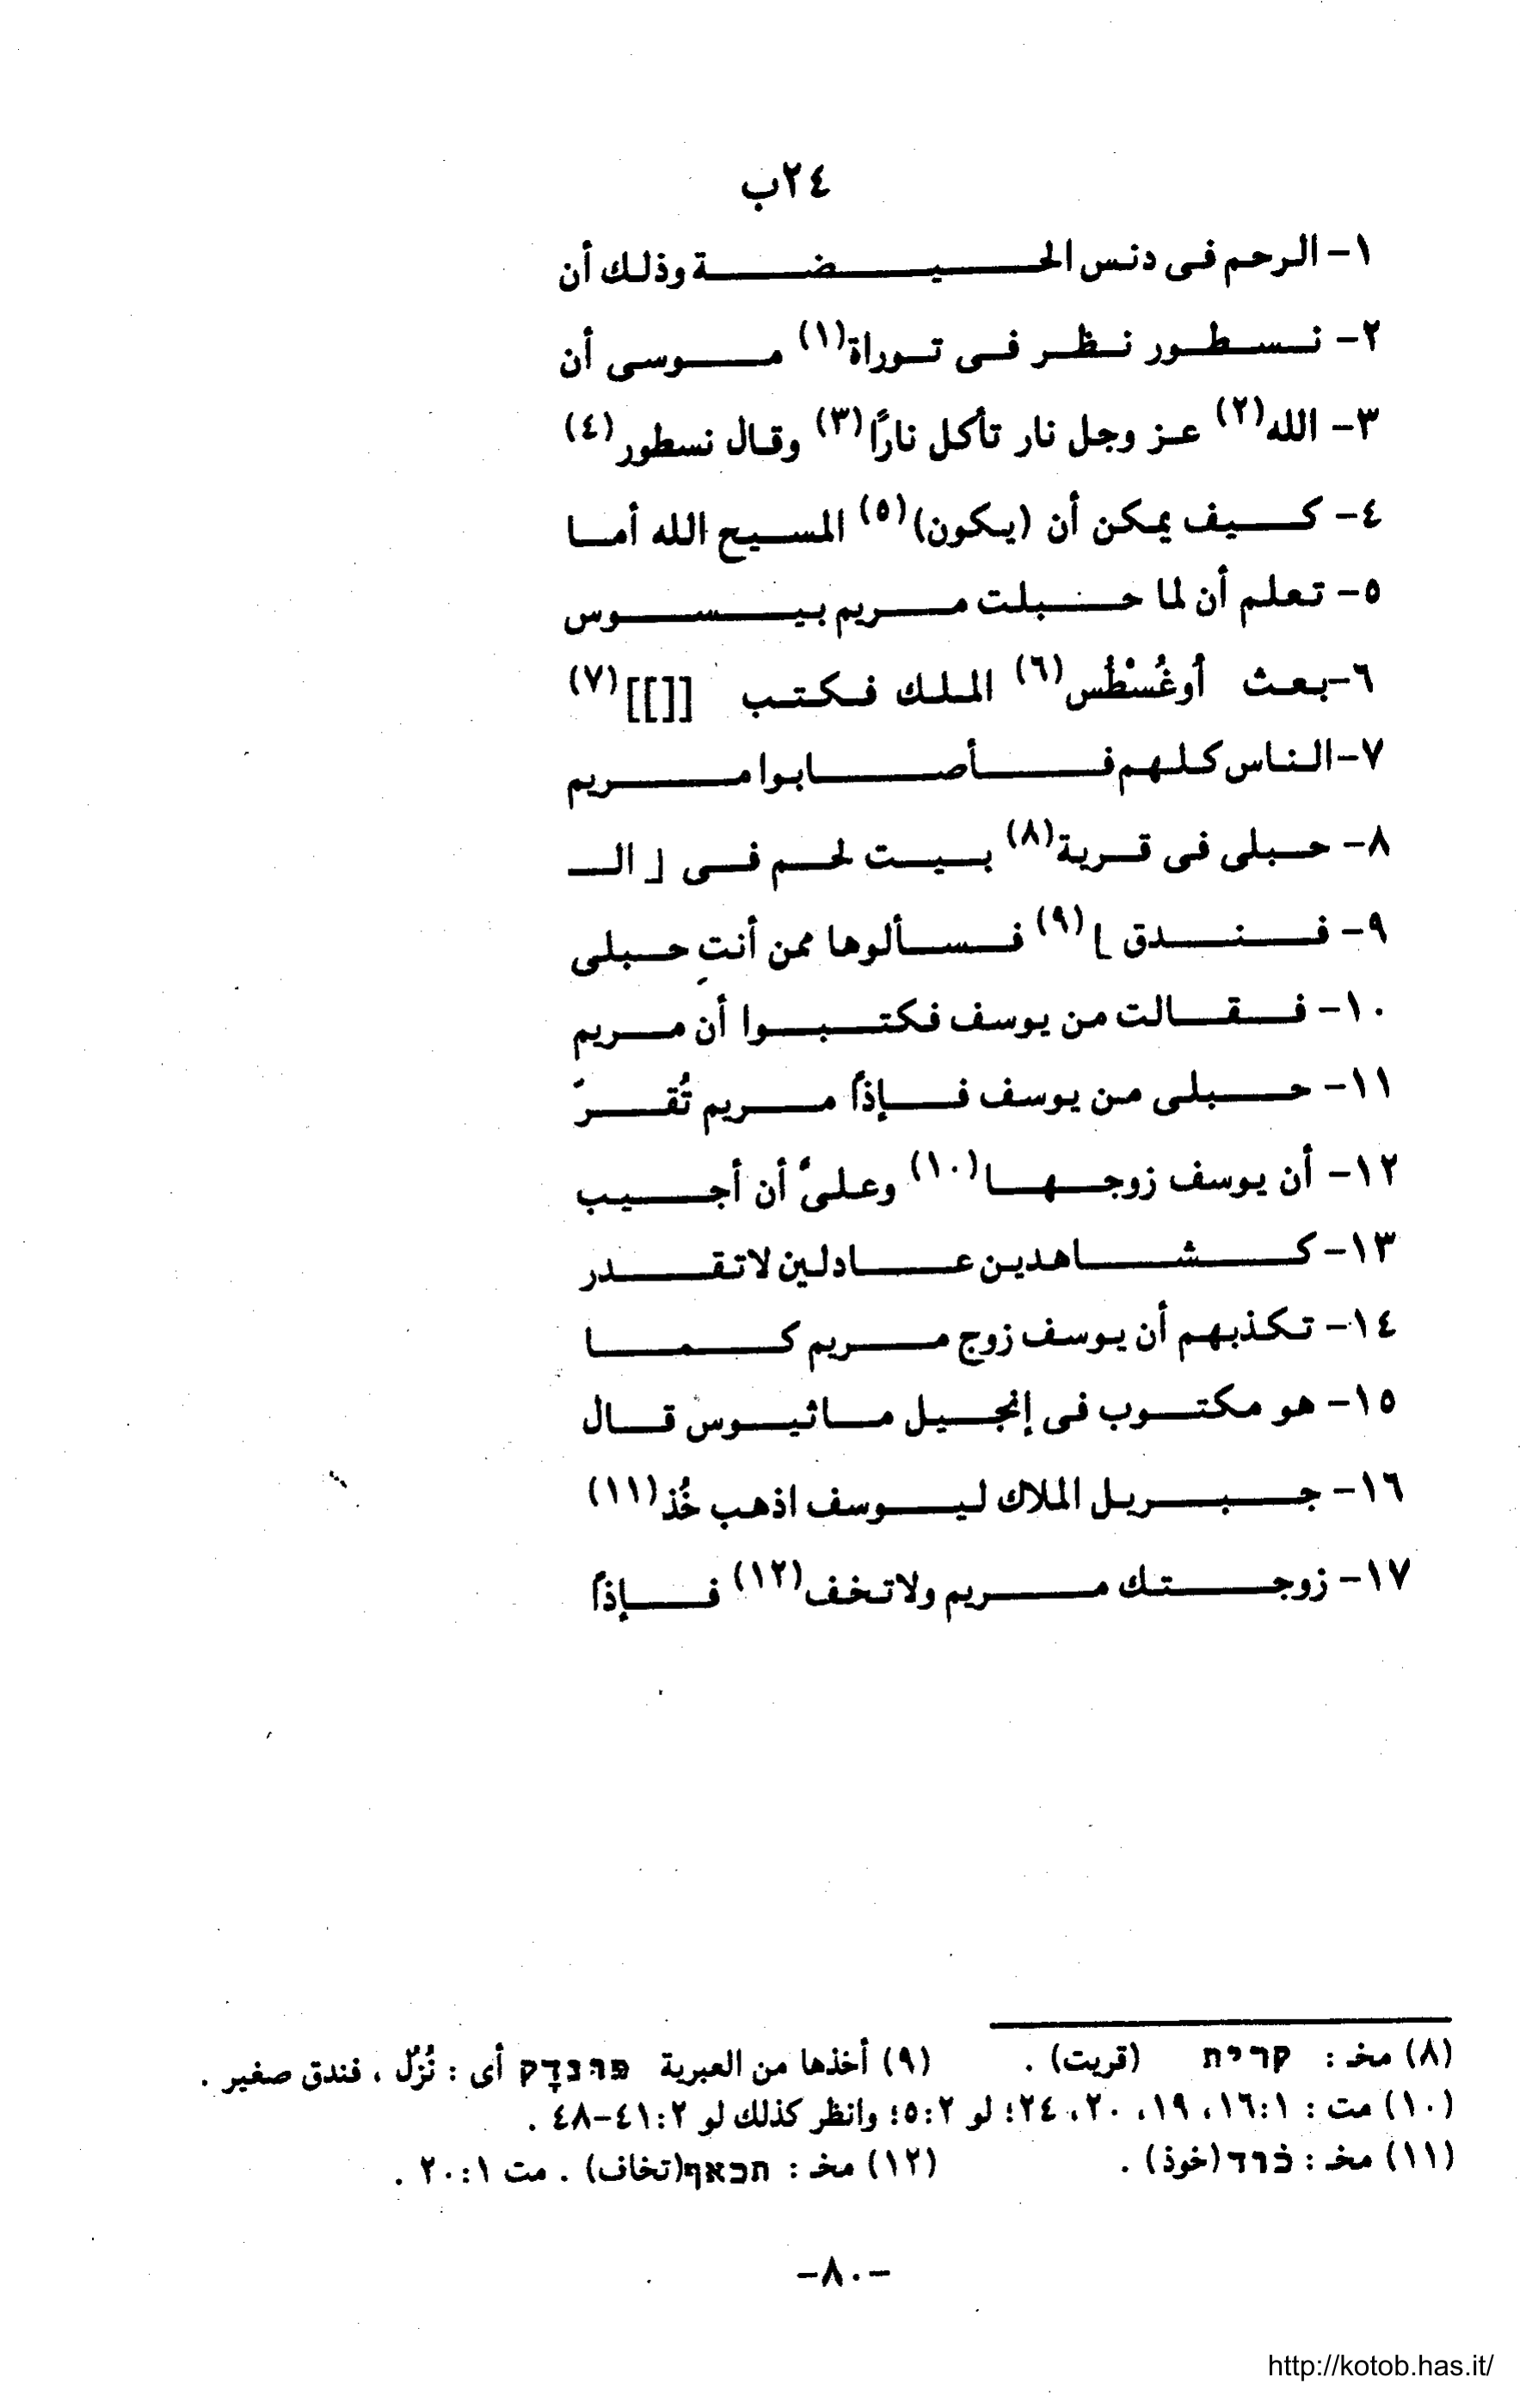 ٢٤ب
١- الرحم فى دنس الحيضة وذلك أن
٢- نسطور نظر فى توراة(١) موسى أن
٣- الله(٢) عز وجل نار تأكل نارًا(٣) وقال نسطور(٤)
٤- كيف يمكن أن (يكون)(٥) المسيح الله أما
٥- تعلم أن لما حبلت مريم بيسوس
٦- بعث أوغُسْطُس(٦) الملك فكتب [[]](٧)
٧- الناس كلهم فأصابوا مريم
٨- حبلى فى قرية(٨) بيت لحم فى ⌋ الـ
٩- فندق ⌊(٩) فسألوها ممن أنتِ حبلى
١٠- فقالت من يوسف فكتبوا أن مريم
١١- حبلى من يوسف فإذاً مريم تُقرّ
١٢- أن يوسف زوجها(١٠) وعلىّ أن أجيب
١٣- كشاهدين عادلين لاتقدر
١٤- تكذبهم أن يوسف زوج مريم كما
١٥- هو مكتوب فى إنجيل ماثيوس قال
١٦- جبريل الملاك ليوسف اذهب خُذ(١١)
١٧- زوجتك مريم ولاتخف(١٢) فإذاً
(٨) مخـ : קרית (قريت) . (٩) أخذها من العبرية פונדָק أى : نُزُل ، فندق صغير .
(١٠) مت : ١:‏١٦، ١٩، ٢٠، ٢٤؛ لو ٢:‏٥؛ وانظر كذلك لو ٢:‏٤١-٤٨ .
(١١) مخـ : כֹוד (خوذ) . (١٢) مخـ : תכאף(تخاف) . مت ١:‏٢٠ .
-٨٠-
http://kotob.has.it/